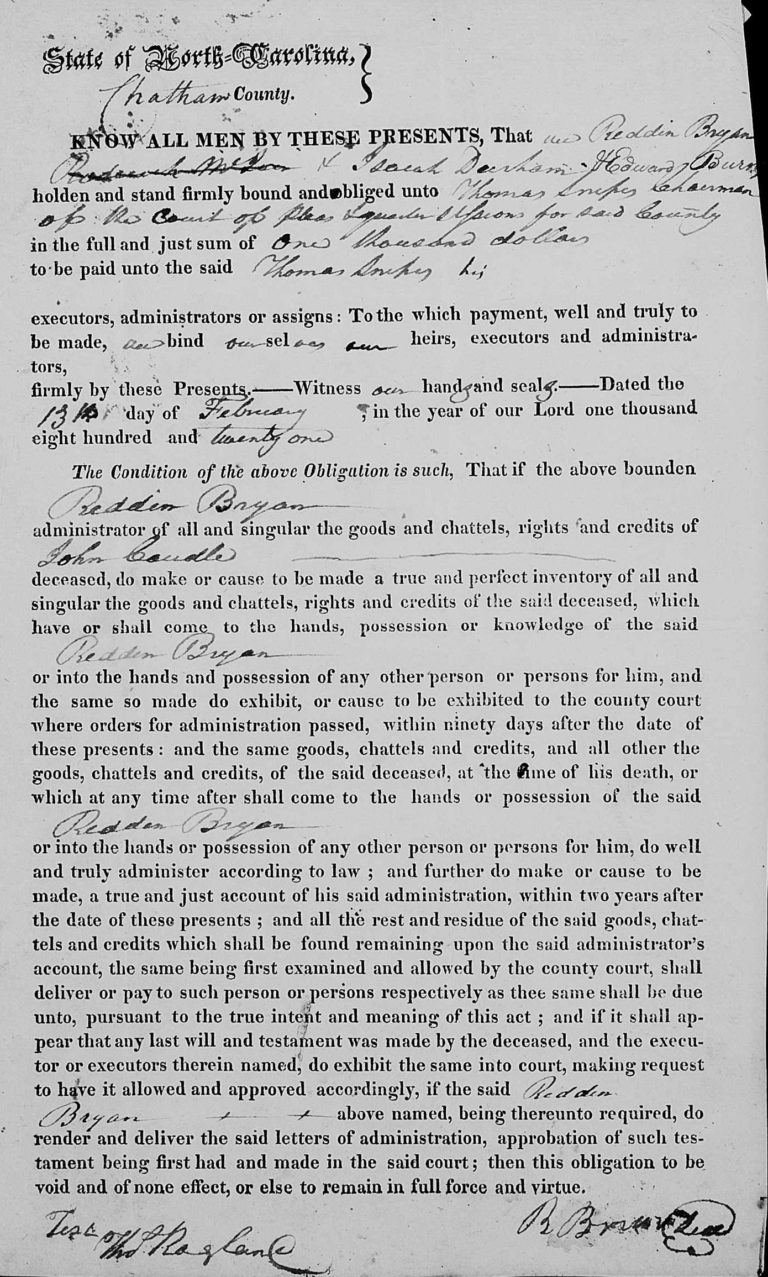 State of North-Carolina,
Chatham County.
KNOW ALL MEN BY THESE PRESENTS, That we Reddin Bryan
& Isaiah Durham & Edward Burns
holden and stand firmly bound and obliged unto Thomas Snipes Chairman
of the Court of pleas & quarter sessions for said County
in the full and just sum of One thousand dollars
to be paid unto the said Thomas Snipes his
executors, administrators or assigns: To the which payment, well and truly to
be made, we bind ourselves our heirs, executors and administra-
tors,
firmly by these Presents.—Witness our hands and seals.—Dated the
13th day of February, in the year of our Lord one thousand
eight hundred and twenty one
The Condition of the above Obligation is such, That if the above bounden
Reddin Bryan
administrator of all and singular the goods and chattels, rights and credits of
John Caudle
deceased, do make or cause to be made a true and perfect inventory of all and
singular the goods and chattels, rights and credits of the said deceased, which
have or shall come to the hands, possession or knowledge of the said
Reddin Bryan
or into the hands and possession of any other person or persons for him, and
the same so made do exhibit, or cause to be exhibited to the county court
where orders for administration passed, within ninety days after the date of
these presents: and the same goods, chattels and credits, and all other the
goods, chattels and credits, of the said deceased, at the time of his death, or
which at any time after shall come to the hands or possession of the said
Redden Bryan
or into the hands or possession of any other person or persons for him, do well
and truly administer according to law; and further do make or cause to be
made, a true and just account of his said administration, within two years after
the date of these presents; and all the rest and residue of the said goods, chat-
tels and credits which shall be found remaining upon the said administrator's
account, the same being first examined and allowed by the county court, shall
deliver or pay to such person or persons respectively as thee same shall be due
unto, pursuant to the true intent and meaning of this act; and if it shall ap-
pear that any last will and testament was made by the deceased, and the execu-
tor or executors therein named, do exhibit the same into court, making request
to have it allowed and approved accordingly, if the said Redden
Bryan above named, being thereunto required, do
render and deliver the said letters of administration, approbation of such tes-
tament being first had and made in the said court; then this obligation to be
void and of none effect, or else to remain in full force and virtue.
Test R Bryan Seal
Tho Ragland